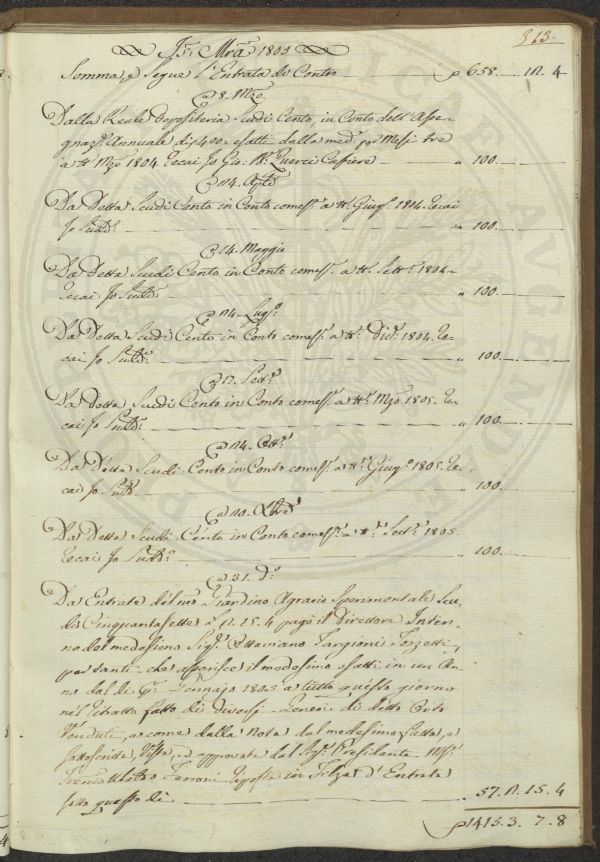 313.
1805
Somma, e Segue l'Entrata di Contro — 658.
a 8. Mzo
Dalla Reale Depositeria Scudi Cento, in Conto dell'Asse-
gnaz.e Annuale di 400 esatti dalla med. p. Mesi tre
a tt.o Mzo 1804. Recai Io Gio: Querci Cassiere — " 100. —
a 14.
Da Detta Scudi Cento in Conto come s.a a tt.o Giug.o 1804. Recai
Io Sudd.o — " 100. —
a 14. Maggio
Da Detta Scudi Cento in Conto come s.a a tt.o Sett.e 1804.
Recai Io Sudd.o — " 100. —
a 14. Lug.o
Da Detta Scudi Cento in Conto come s.a a tt.o Dic.e 1804. Re-
cai Io Sudd.o — " 100. —
a 17. Sett.e
Da Detta Scudi Cento in Conto come s.a a tt.o Mzo 1805. Re-
cai Io Sudd.o — " 100. —
a 14. Ott.e
Da Detta Scudi Cento in Conto come s.a a tt.o Giug.o 1805. Re-
cai Io Sudd.o — " 100. —
a 10.
Da Detta Scudi Cento in Conto come s.a a tt.o Sett.e 1805.
Recai Io Sudd.o — " 100. —
a 31. D.o
Da Entrate del nro Giardino Agrario Sperimentale Scu-
di Cinquantasette pagò il Direttore Inter-
no del medesimo Sig.e Ottaviano Targioni Tozzetti,
per tanti che apparisce il medesimo esatti in un An-
no dal dì P.o Gennajo 1805 a tutto questo giorno
nel Ritratto fatto dei diversi Generi di detto Orto
Venduti, come dalla Nota dal medesimo fatta, e
sottoscritta, Vista, ed approvata dal Sig.e Presidente
Ferroni riposta in Filza d'Entrata
sotto questo dì — " 57. 15. 4
1415. 3. 7. 8